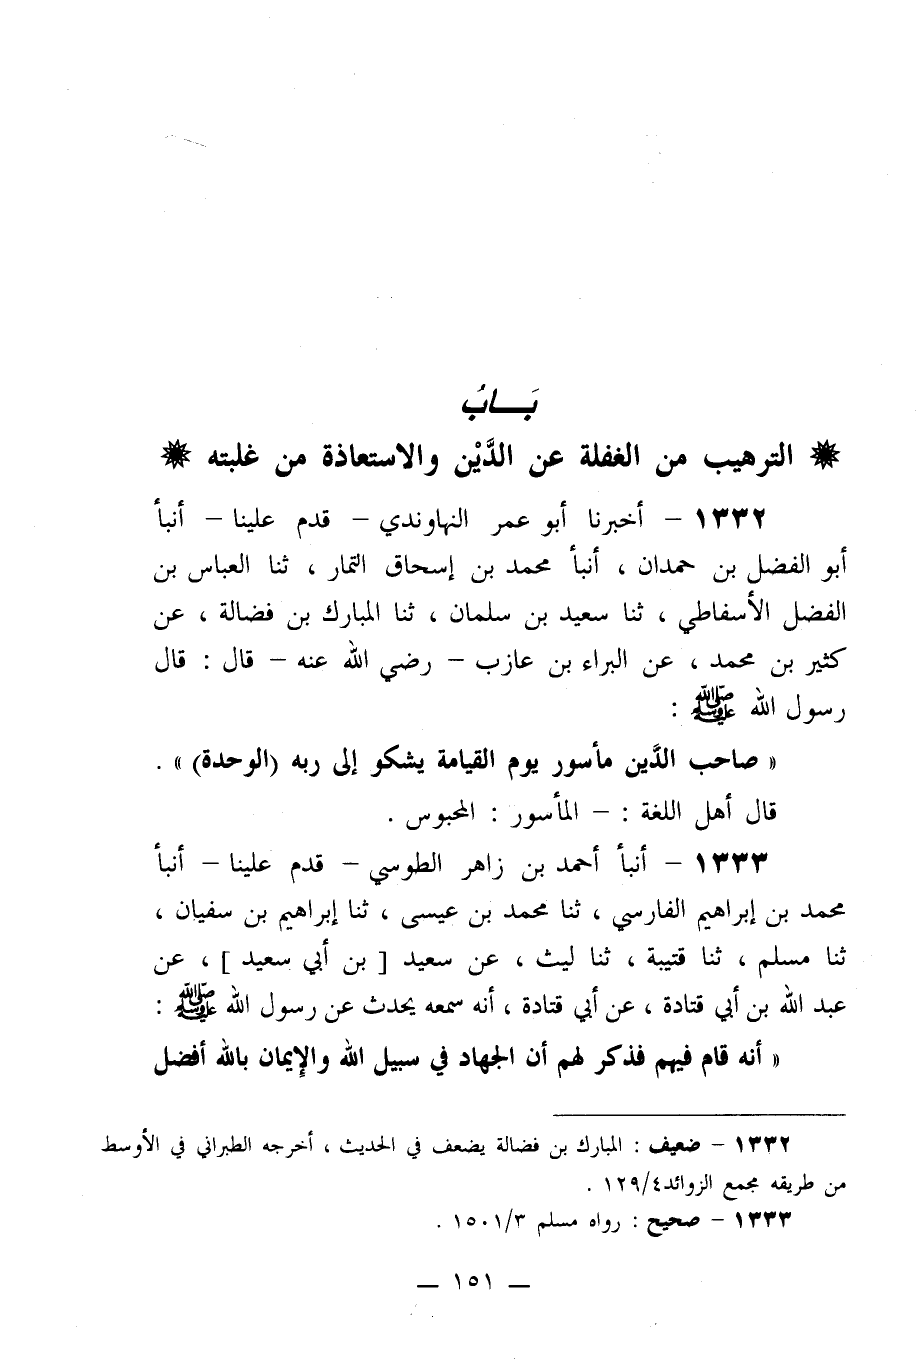 بَـــابُ
الترهيب من الغفلة عن الدَّيْن والاستعاذة من غلبته
١٣٣٢ – أخبرنا أبو عمر النهاوندي – قدم علينا – أنبأ
أبو الفضل بن حمدان ، أنبأ محمد بن إسحاق التمار ، ثنا العباس بن
الفضل الأسفاطي ، ثنا سعيد بن سلمان ، ثنا المبارك بن فضالة ، عن
كثير بن محمد ، عن البراء بن عازب – رضي الله عنه – قال : قال
رسول الله ﷺ :
« صاحب الدَّين مأسور يوم القيامة يشكو إلى ربه (الوحدة) » .
قال أهل اللغة : – المأسور : المحبوس .
١٣٣٣ – أنبأ أحمد بن زاهر الطوسي – قدم علينا – أنبأ
محمد بن إبراهيم الفارسي ، ثنا محمد بن عيسى ، ثنا إبراهيم بن سفيان ،
ثنا مسلم ، ثنا قتيبة ، ثنا ليث ، عن سعيد [ بن أبي سعيد ] ، عن
عبد الله بن أبي قتادة ، عن أبي قتادة ، أنه سمعه يحدث عن رسول الله ﷺ :
« أنه قام فيهم فذكر لهم أن الجهاد في سبيل الله والإيمان بالله أفضل
١٣٣٢ – ضعيف : المبارك بن فضالة يضعف في الحديث ، أخرجه الطبراني في الأوسط
من طريقه مجمع الزوائد ١٢٩/٤ .
١٣٣٣ – صحيح : رواه مسلم ١٥٠١/٣ .
— ١٥١ —